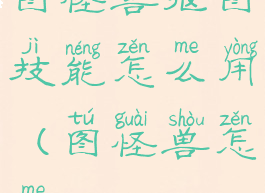 图怪兽抠图
jì néng zěn me yòng
技能怎么用
tú guài shòu zěn
(图怪兽怎
me